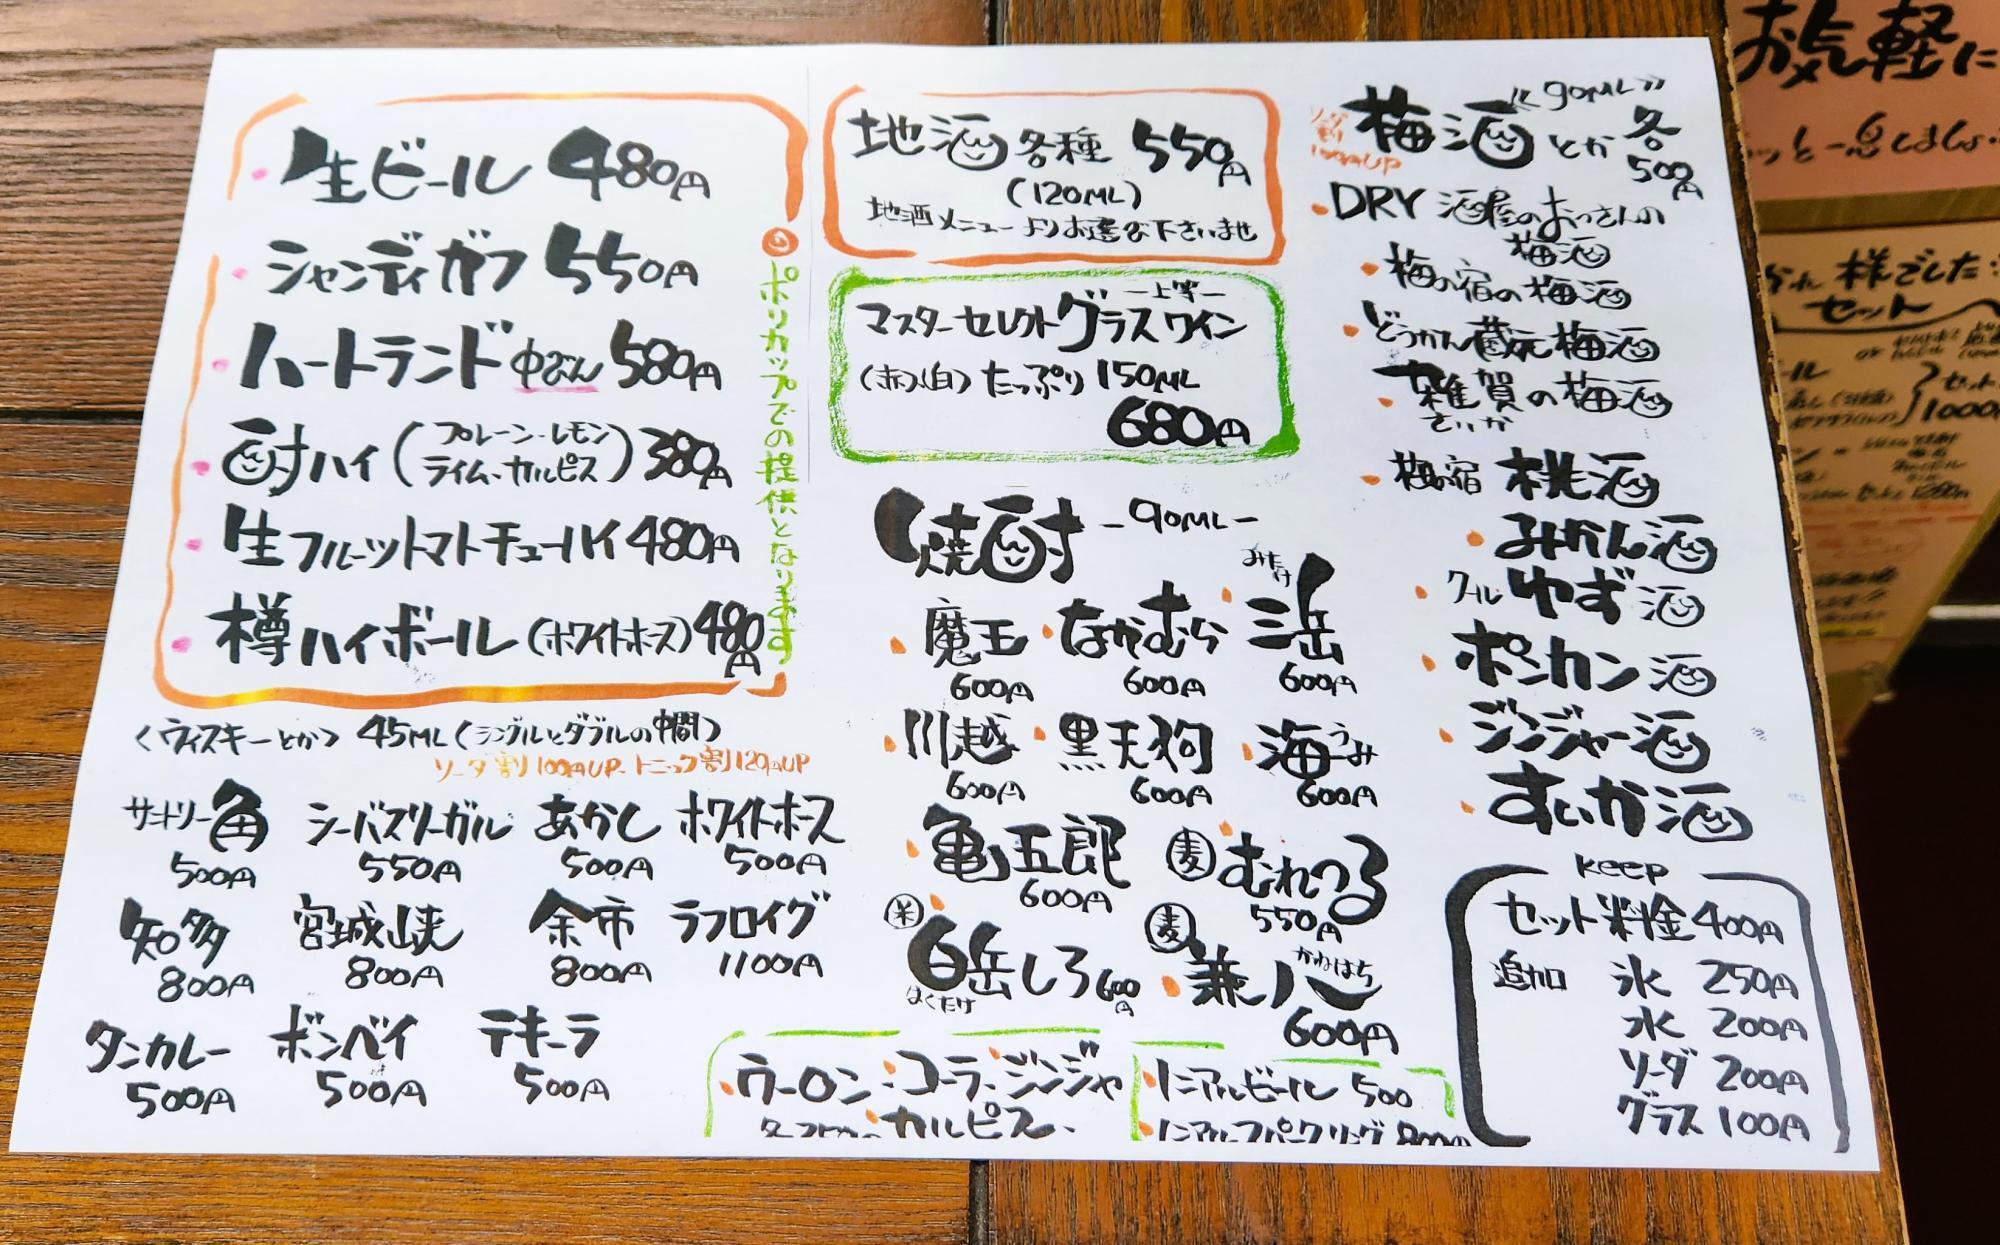 生ビール 480円
シャンディガフ 550円
ハートランド 中びん 580円
酎ハイ(プレーン・レモン
ライム・カルピス) 380円
生フルーツトマトチューハイ 480円
樽ハイボール(ホワイトホース) 480円
◎ポリカップでの提供となります
<ウィスキーとか> 45ML(シングルとダブルの中間)
ソーダ割り100円UP トニック割120円UP
サントリー角 シーバスリーガル あかし ホワイトホース
500円 550円 500円 500円
知多 宮城峡 余市 ラフロイグ
800円 800円 800円 1100円
タンカレー ボンベイ テキーラ
500円 500円 500円
地酒 各種 550円
(120ML)
地酒メニューよりお選び下さいませ
マスターセレクト 上等 グラスワイン
(赤)(白) たっぷり 150ML
680円
焼酎 -90ML-
魔王 なかむら 三岳 みたけ
600円 600円 600円
川越 黒天狗 海 うみ
600円 600円 600円
亀五郎 麦 むれつる
600円 550円
米 白岳しろ 600円 麦 兼八 かねはち
はくたけ 600円
ウーロン・コーラ・ジンジャ
カルピス、
ノンアルビール 500
梅酒とか 《90ML》 各500円
ソーダ割り100円UP
DRY 酒屋のおっさんの
梅酒
梅の宿の梅酒
どうかん蔵元梅酒
雑賀の梅酒
さいか
梅の宿 桃酒
みかん酒
クールゆず酒
ポンカン酒
ジンジャー酒
すいか酒
Keep
セット料金 400円
追加 氷 250円
水 200円
ソーダ 200円
グラス 100円
お気軽に
様でした
セット